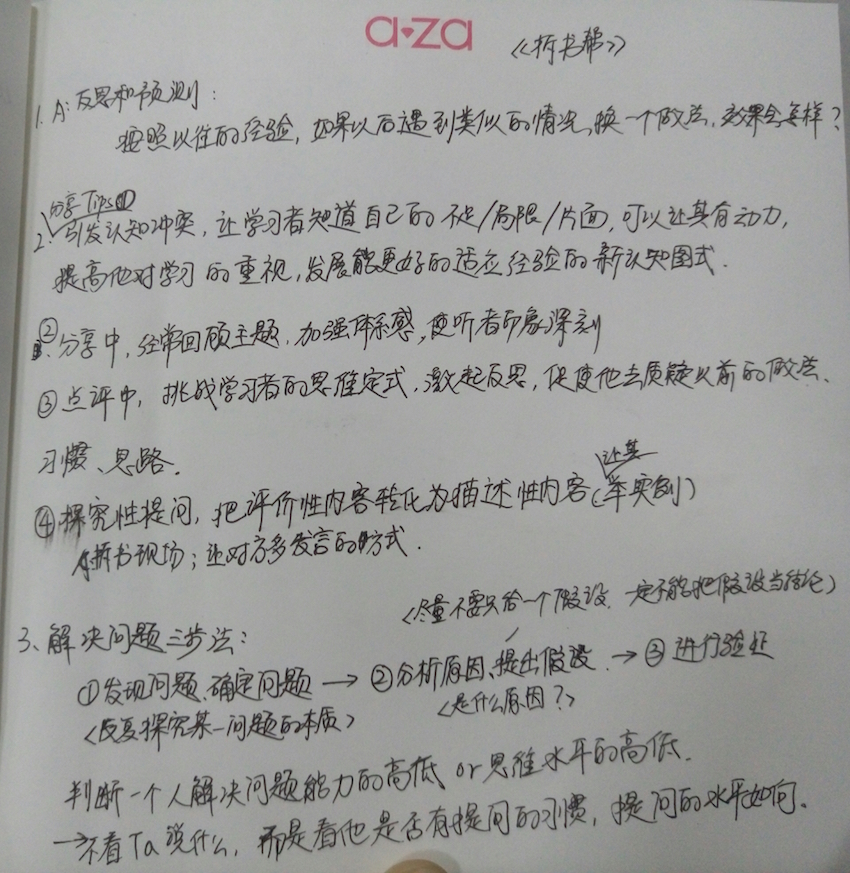 a·za
《拆书帮》
1. A: 反思和预测:
按照以往的经验, 如果以后遇到类似的情况, 换一个做法, 效果会怎样?
分享Tips①
2. 引发认知冲突, 让学习者知道自己的不足/局限/片面, 可以让其有动力,
提高他对学习的重视, 发展能更好的适应经验的新认知图式.
② 分享中, 经常回顾主题, 加强体系感, 使听者印象深刻
③ 点评中, 挑战学习者的思维定式, 激起反思, 促使他去质疑以前的做法、
习惯、思路.
让其
④ 探究性提问, 把评价性内容转化为描述性内容(举实例)
拆书现场; 让对方多发言的方式.
<尽量不要只给一个假设, 一定不能把假设当结论>
3、解决问题三步法:
①发现问题、确定问题 → ②分析原因、提出假设. → ③ 进行验证
<反复探究某一问题的本质> <是什么原因?>
判断一个人解决问题能力的高低, or 思维水平的高低.
→不看Ta说什么, 而是看他是否有提问的习惯, 提问的水平如何.